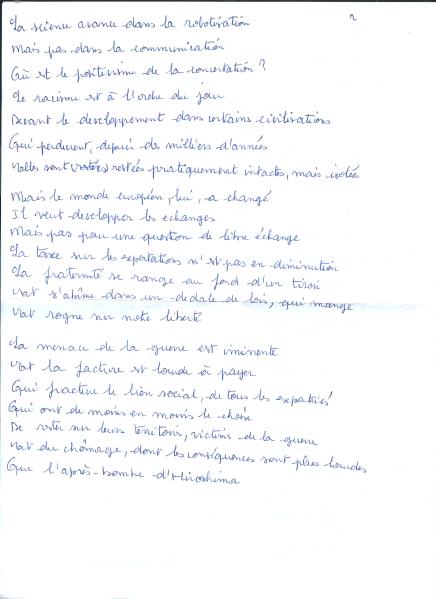 2
La science avance dans la robotisation
Mais pas dans la communication
Où est le positivisme de la concertation ?
Le racisme est à l'ordre du jour
Devant le developpement dans certains civilisations
Qui perdurent, depuis des milliers d'années
Elles sont (restées) restées pratiquement intactes, mais isolées
Mais le monde européen, lui, a changé
Il veut developper les echanges
Mais pas pour une question de libre échange
La taxe sur les exportations n'est pas en diminution
La fraternité se range au fond d'un tiroir
Et s'abîme dans un dédale de lois, qui mange
Et rogne sur notre liberté
La menace de la guerre est iminente
Et la facture est lourde à payer
Qui fracture le lien social, de tous les expatriés
Qui ont de moins en moins le choix
De rester sur leurs territoires, victimes de la guerre
Et du chômage, dont les conséquences sont plus lourdes
Que l'après-bombe d'Hiroshima